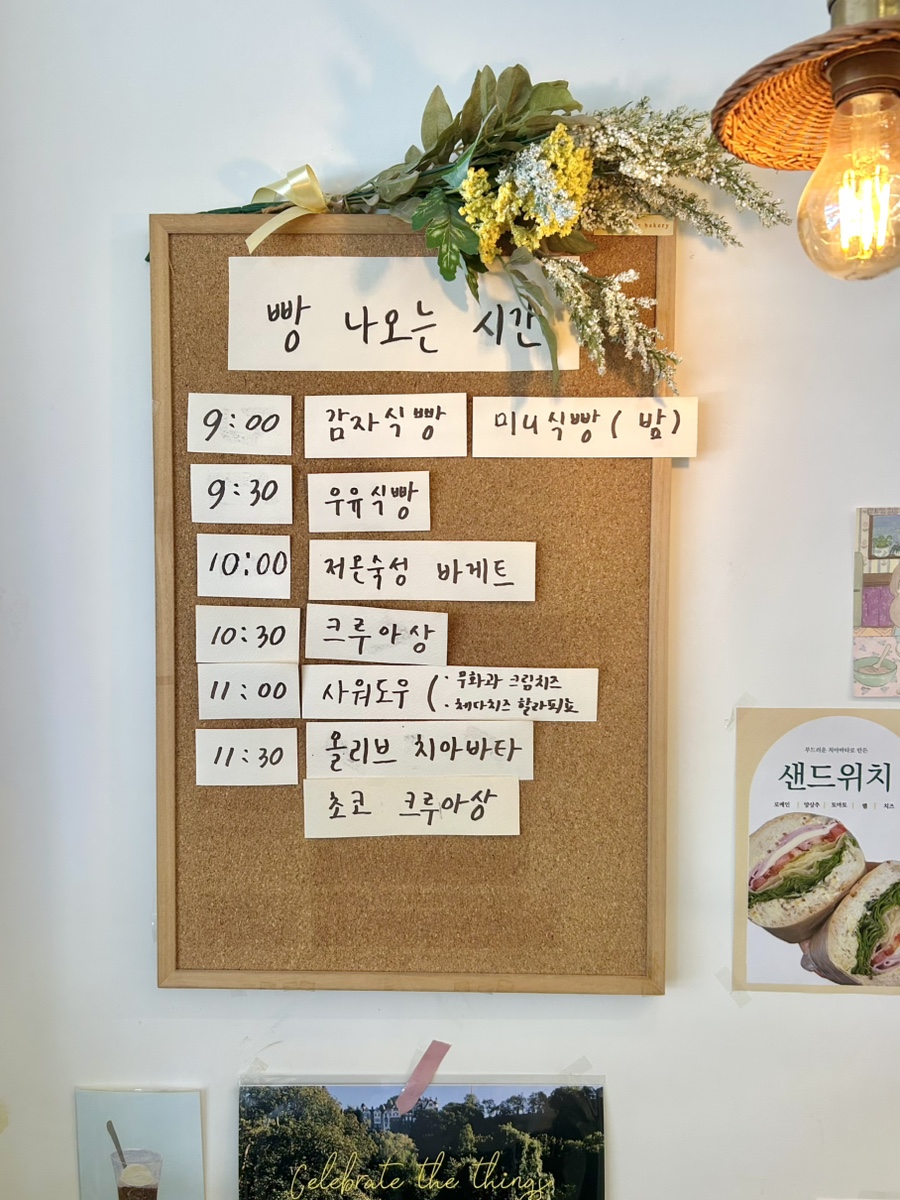 bakery
빵 나오는 시간
9:00 감자식빵 미니식빵 ( 밤 )
9:30 우유식빵
10:00 저온숙성 바게트
10:30 크루아상
11:00 사워도우 ( · 무화과 크림치즈
· 체다치즈 할라피뇨
11:30 올리브 치아바타
초코 크루아상
부드러운 치아바타로 만든
샌드위치
로메인 | 양상추 | 토마토 | 햄 | 치즈
Celebrate the things